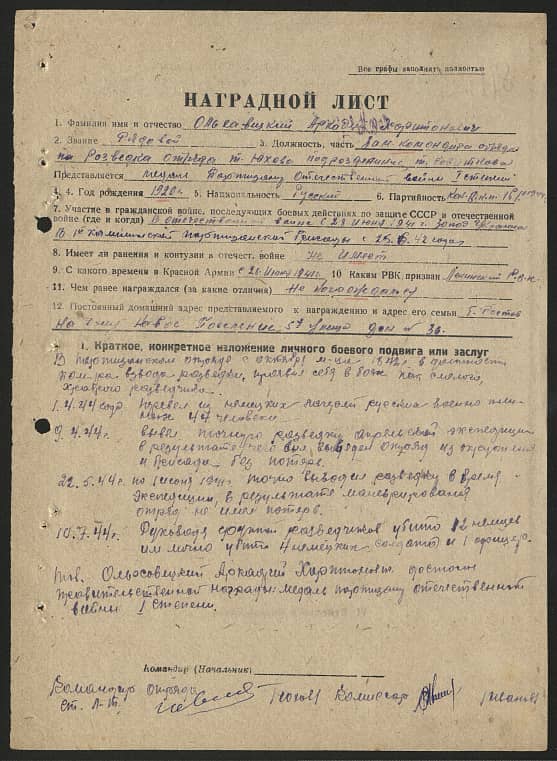 Все графы заполнять полностью
НАГРАДНОЙ ЛИСТ
1. Фамилия имя и отчество Ольсавицкий Аркадий Харитонович
2. Звание Рядовой 3. Должность, часть Пом. командира отряда
по Разведке отряда т. Юхова подразделения т.
Представляется медали Партизану Отечественной войны I степени
4. Год рождения 1920 г. 5. Национальность Русский 6. Партийность
7. Участие в гражданской войне, последующих боевых действиях по защите СССР и отечественной
войне (где и когда) В отечественной войне с 28 июня 1941 г. Запад Украина
В партизанской Бригады с 25.6.42 года
8. Имеет ли ранения и контузии в отечест. войне не имеет
9. С какого времени в Красной Армии с 26 июня 1941 г. 10 Каким РВК призван Ленинский Р.В.К.
11. Чем ранее награжден (за какие отличия) Не награждался
12. Постоянный домашний адрес представляемого к награждению и адрес его семьи г. Ростов
На Дону Новое Поселение 5я улица дом № 36.
I. Краткое, конкретное изложение личного боевого подвига или заслуг
В партизанском отряде с октября 1942 в должности
пом. ра взвода разведки, проявил себя в боях как смелого,
храброго разведчика.
1.4.44 года Перевел из немецких лагерей русских военно плен-
ных 47 человек.
9.4.44г. вывел точную разведку апрельской экспедиции
в результате чего был выведен отряд из окружения
и Бригада без потерь.
22.5.44г. по 1 июня 1944 точно выводил разведку в время
экспедиции, в результате маневрирования
отряд не имел потерь.
10.7.44г. Руководя группой разведчиков убито 12 немцев
им лично убито 4 немецких солдата и 1 офицер.
тов. Ольсовицкий Аркадий Харитонович достоин
правительственной награды: медаль партизану отечественной
войны I степени.
Командир (Начальник)
Командир отряда Юхов Комиссар Иванов
ст. л-т.